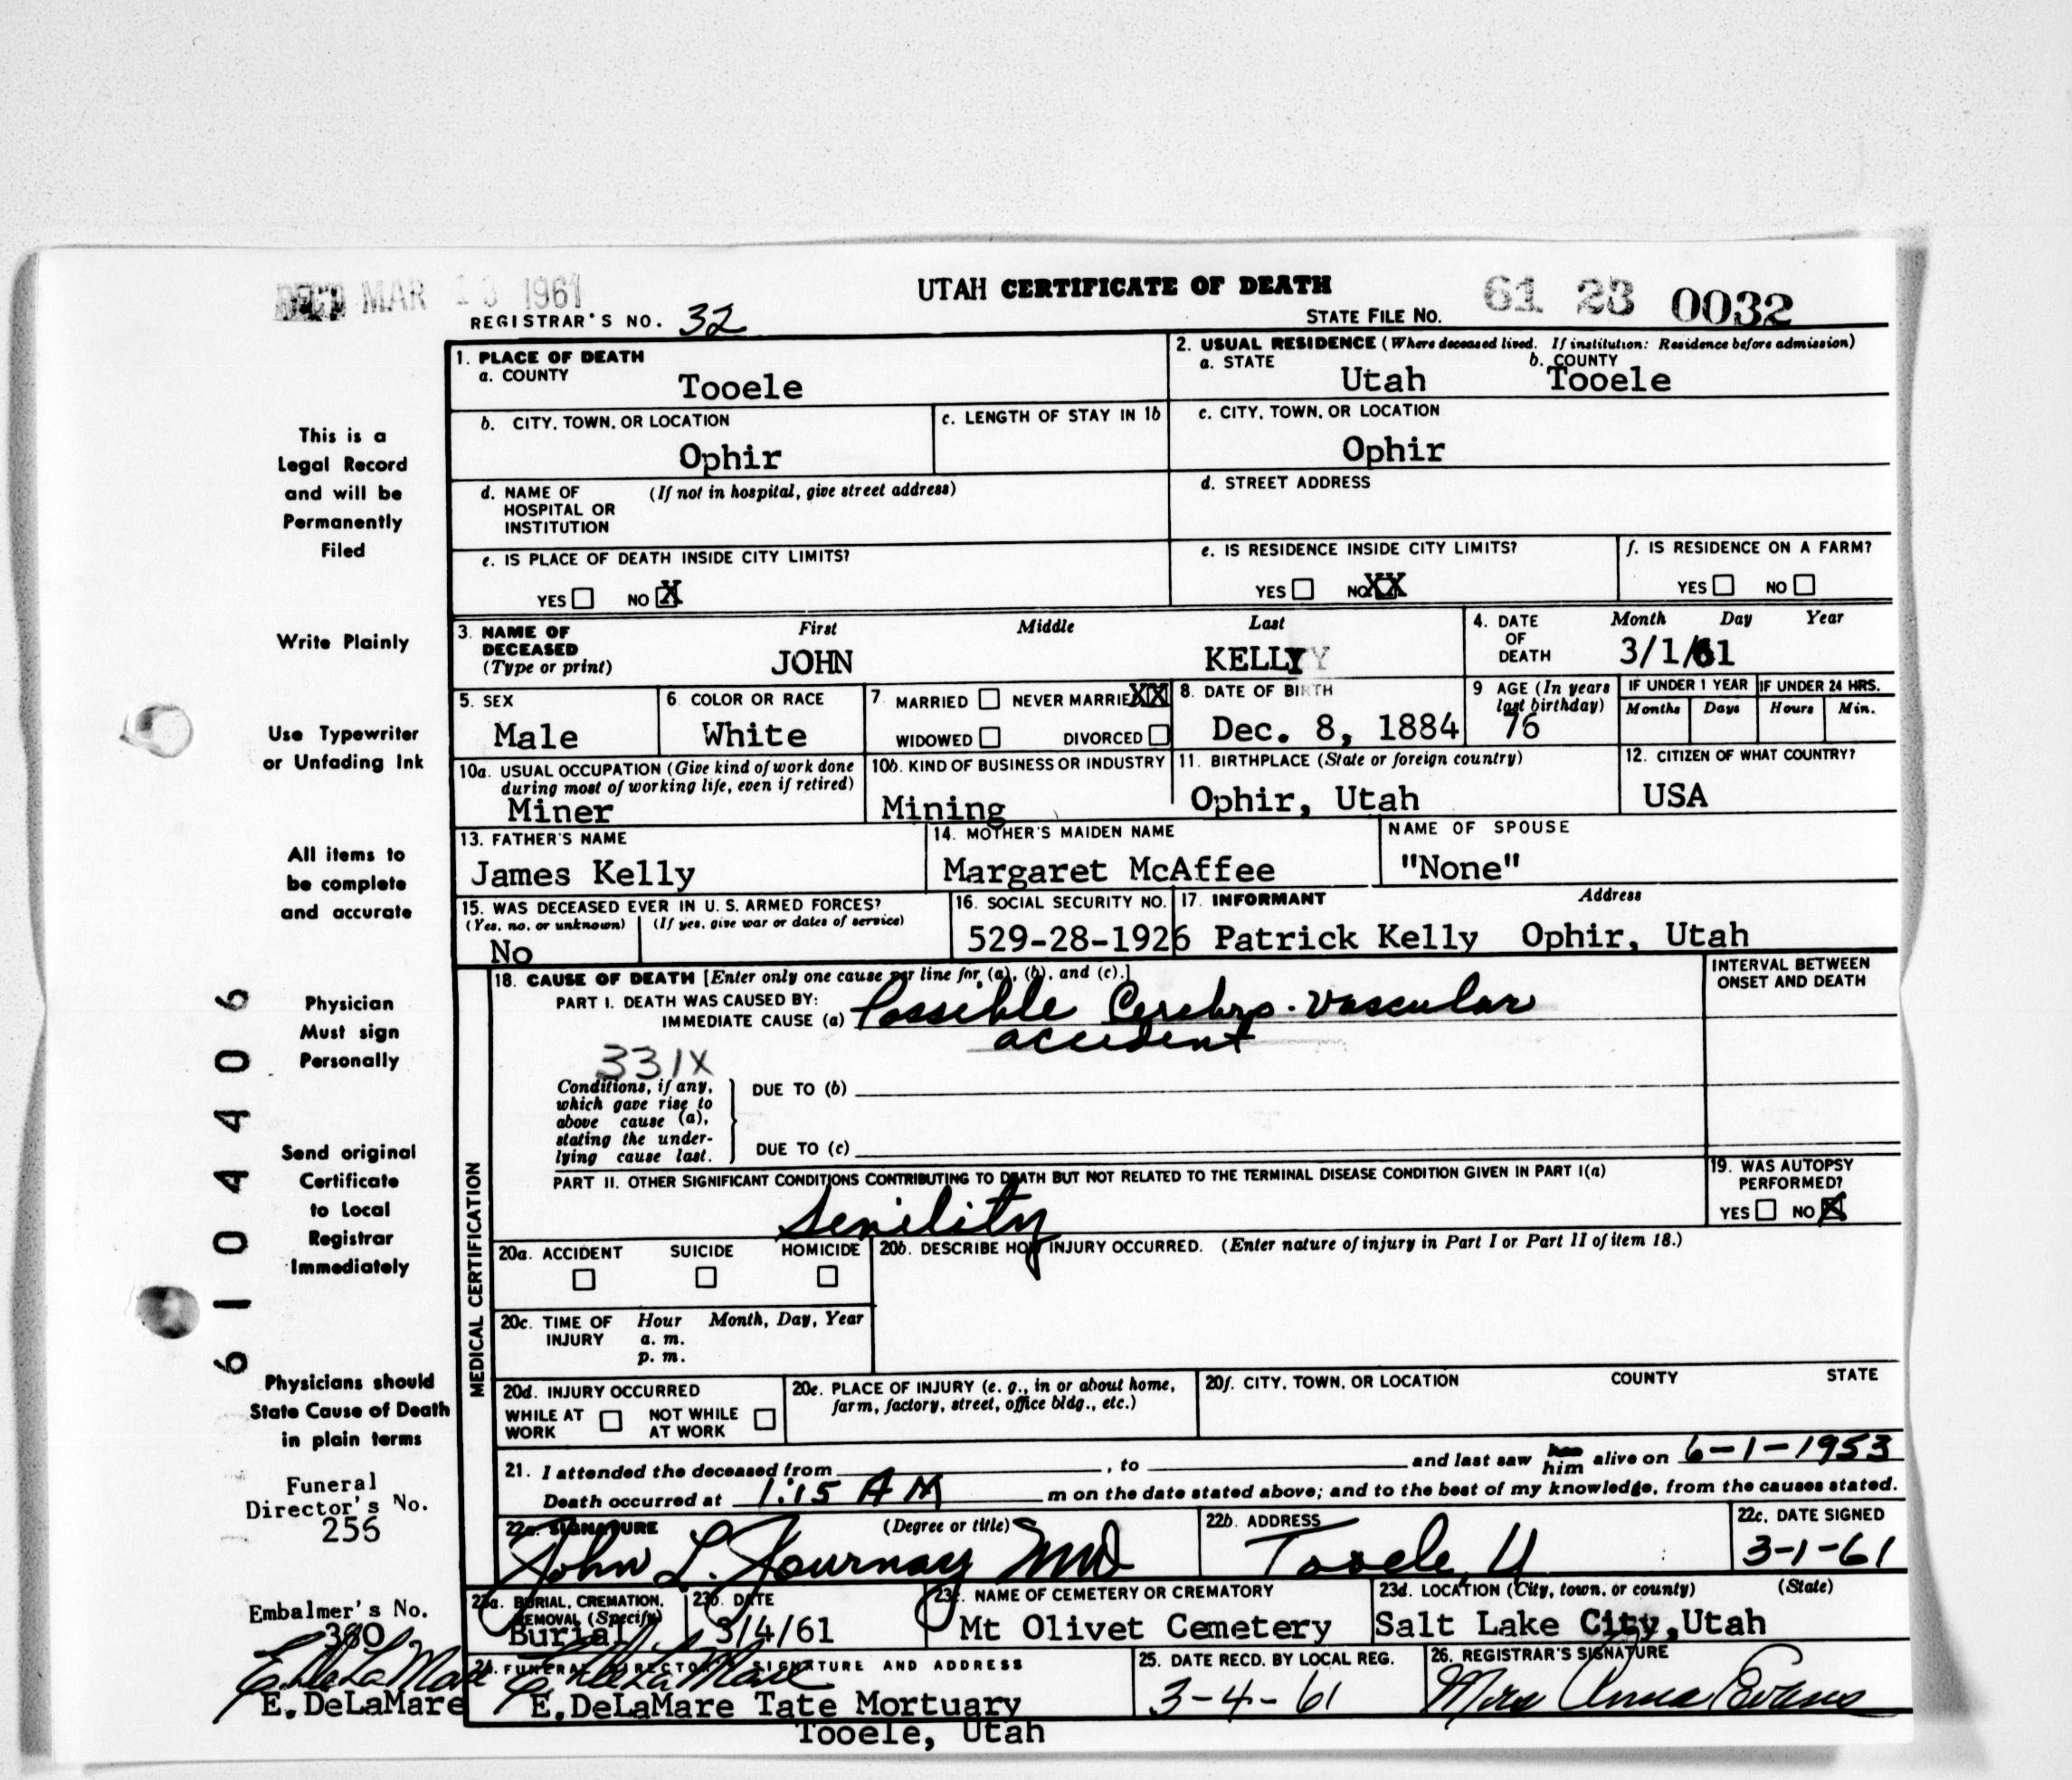 REC'D MAR 13 1961
UTAH CERTIFICATE OF DEATH
REGISTRAR'S NO. 32
STATE FILE No. 61 23 0032
1. PLACE OF DEATH
a. COUNTY
Tooele
2. USUAL RESIDENCE (Where deceased lived. If institution: Residence before admission)
a. STATE Utah b. COUNTY Tooele
b. CITY, TOWN, OR LOCATION
Ophir
c. LENGTH OF STAY IN 1b
c. CITY, TOWN, OR LOCATION
Ophir
d. NAME OF HOSPITAL OR INSTITUTION (If not in hospital, give street address)
d. STREET ADDRESS
e. IS PLACE OF DEATH INSIDE CITY LIMITS?
YES NO X
e. IS RESIDENCE INSIDE CITY LIMITS?
YES NO XX
f. IS RESIDENCE ON A FARM?
YES NO
3. NAME OF DECEASED (Type or print)
First Middle Last
JOHN KELLY
4. DATE OF DEATH Month Day Year
3/1/61
5. SEX
Male
6. COLOR OR RACE
White
7. MARRIED NEVER MARRIED XX
WIDOWED DIVORCED
8. DATE OF BIRTH
Dec. 8, 1884
9 AGE (In years last birthday)
76
IF UNDER 1 YEAR IF UNDER 24 HRS.
Months Days Hours Min.
10a. USUAL OCCUPATION (Give kind of work done during most of working life, even if retired)
Miner
10b. KIND OF BUSINESS OR INDUSTRY
Mining
11. BIRTHPLACE (State or foreign country)
Ophir, Utah
12. CITIZEN OF WHAT COUNTRY?
USA
13. FATHER'S NAME
James Kelly
14. MOTHER'S MAIDEN NAME
Margaret McAffee
NAME OF SPOUSE
"None"
15. WAS DECEASED EVER IN U. S. ARMED FORCES?
(Yes, no, or unknown) (If yes, give war or dates of service)
No
16. SOCIAL SECURITY NO.
529-28-1926
17. INFORMANT Address
Patrick Kelly Ophir, Utah
MEDICAL CERTIFICATION
18. CAUSE OF DEATH [Enter only one cause per line for (a), (b), and (c).]
PART I. DEATH WAS CAUSED BY:
IMMEDIATE CAUSE (a) Possible Cerebro-vascular
accident
331X
Conditions, if any, which gave rise to above cause (a), stating the underlying cause last.
DUE TO (b)
DUE TO (c)
INTERVAL BETWEEN ONSET AND DEATH
PART II. OTHER SIGNIFICANT CONDITIONS CONTRIBUTING TO DEATH BUT NOT RELATED TO THE TERMINAL DISEASE CONDITION GIVEN IN PART I(a)
Senility
19. WAS AUTOPSY PERFORMED?
YES NO X
20a. ACCIDENT SUICIDE HOMICIDE
20b. DESCRIBE HOW INJURY OCCURRED. (Enter nature of injury in Part I or Part II of item 18.)
20c. TIME OF INJURY Hour Month, Day, Year
a. m.
p. m.
20d. INJURY OCCURRED
WHILE AT WORK NOT WHILE AT WORK
20e. PLACE OF INJURY (e. g., in or about home, farm, factory, street, office bldg., etc.)
20f. CITY, TOWN, OR LOCATION COUNTY STATE
21. I attended the deceased from , to and last saw her him alive on 6-1-1953
Death occurred at 1:15 AM m on the date stated above; and to the best of my knowledge, from the causes stated.
22a. SIGNATURE (Degree or title)
John L. Journay MD
22b. ADDRESS
Tooele, U
22c. DATE SIGNED
3-1-61
23a. BURIAL, CREMATION, REMOVAL (Specify)
Burial
23b. DATE
3/4/61
23c. NAME OF CEMETERY OR CREMATORY
Mt Olivet Cemetery
23d. LOCATION (City, town, or county) (State)
Salt Lake City, Utah
24. FUNERAL DIRECTOR'S SIGNATURE AND ADDRESS
E. DeLaMare
E.DeLaMare Tate Mortuary
Tooele, Utah
25. DATE RECD. BY LOCAL REG.
3-4-61
26. REGISTRAR'S SIGNATURE
Mrs Anna Evans
This is a
Legal Record
and will be
Permanently
Filed
Write Plainly
Use Typewriter
or Unfading Ink
All items to
be complete
and accurate
Physician
Must sign
Personally
Send original
Certificate
to Local
Registrar
Immediately
Physicians should
State Cause of Death
in plain terms
Funeral
Director's No.
256
Embalmer's No.
380
E. DeLaMare
E.DeLaMare
6104406